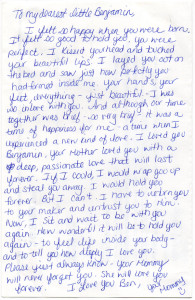 To my dearest little Benjamin,
I felt so happy when you were born.
It felt so good to hold you, you were
perfect. I kissed your head and touched
your beautiful lips. I layed you out on
the bed and saw just how perfectly you
had formed inside my. Your hands, your
feet, everything - just beautiful. I was
so in love with you. And although our time
together was brief - so very brief - it was a
time of happiness for me - a time when I
experienced a new kind of love. I loved you
Benjamin, your Mother loved you with a
deep, passionate love that will last
forever. If I could, I would wrap you up
and steal you away. I would hold you
forever. But I can't. I have to return you
to your maker and entrust you to Him.
Now, I sit and wait to be with you
again. How wonderful it will be to hold you
again - to feel life inside your body
and to tell you how deeply I love you.
Please just always know - your Mommy
will never forget you. She will love you
forever.
I love you Ben,
Mommy